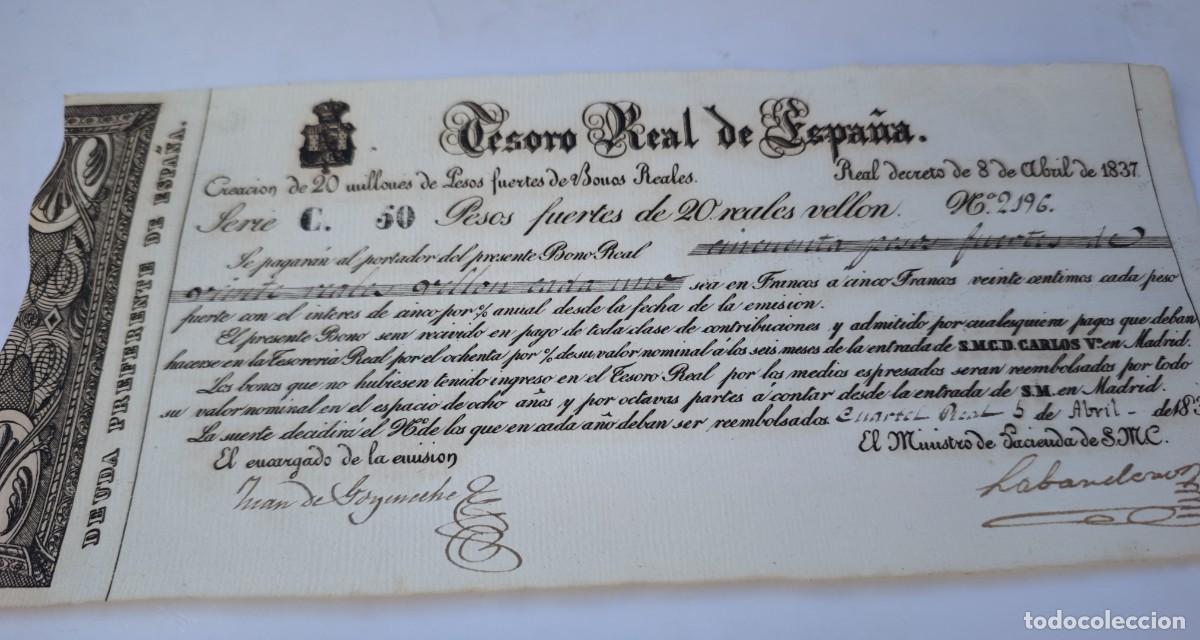 DEUDA PREFERENTE DE ESPAÑA.
Tesoro Real de España.
Creacion de 20 millones de Pesos fuertes de Bonos Reales.
Real decreto de 8 de Abril de 1837
Serie C. 50 Pesos fuertes de 20 reales vellon. Nº. 2196.
Se pagarán al portador del presente Bono Real cincuenta pesos fuertes de
veinte reales vellon cada uno sea en Francos a cinco Francos veinte centimos cada peso
fuerte con el interes de cinco por % anual desde la fecha de la emision.
El presente Bono sera recivido en pago de toda clase de contribuciones y admitido por cualesquiera pagos que deban
hacerse en la Tesoreria Real por el ochenta por % de su valor nominal á los seis meses de la entrada de S.M.C.D. CARLOS Vº. en Madrid.
Los bonos que no hubiesen tenido ingreso en el Tesoro Real por los medios espresados seran reembolsados por todo
su valor nominal en el espacio de ocho años y por octavas partes á contar desde la entrada de S.M. en Madrid.
La suerte decidirá el Nº de los que en cada año deban ser reembolsados. Cuartel Real 5 de Abril - de 183
El encargado de la emision
El Ministro de Hacienda de S.M.C.
Juan de Goyeneche
Labandero
todocoleccion